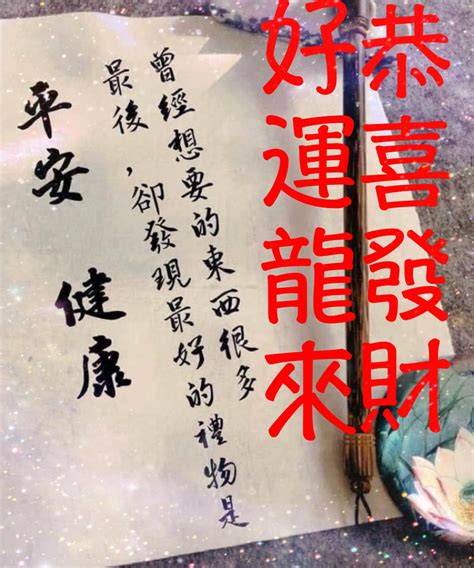 恭喜發財
好運龍來
曾經想要的東西很多
最後，卻發現最好的禮物是
平安
健康